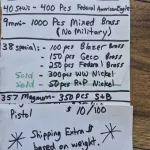 40 S&W - 400 Pcs Federal American Eagle
9mm - 1000 Pcs Mixed Brass
(No Military)
38 special - 100 pcs Blazer Brass
- 150 pcs Geco Brass
- 250 pcs Federal Brass
Sold - 300 pcs WW Nickel
Sold - 50 pcs R-P Nickel
357 Magnum - 350 PCS S+B
Pistol $10/100
Shipping Extra $
based on weight.